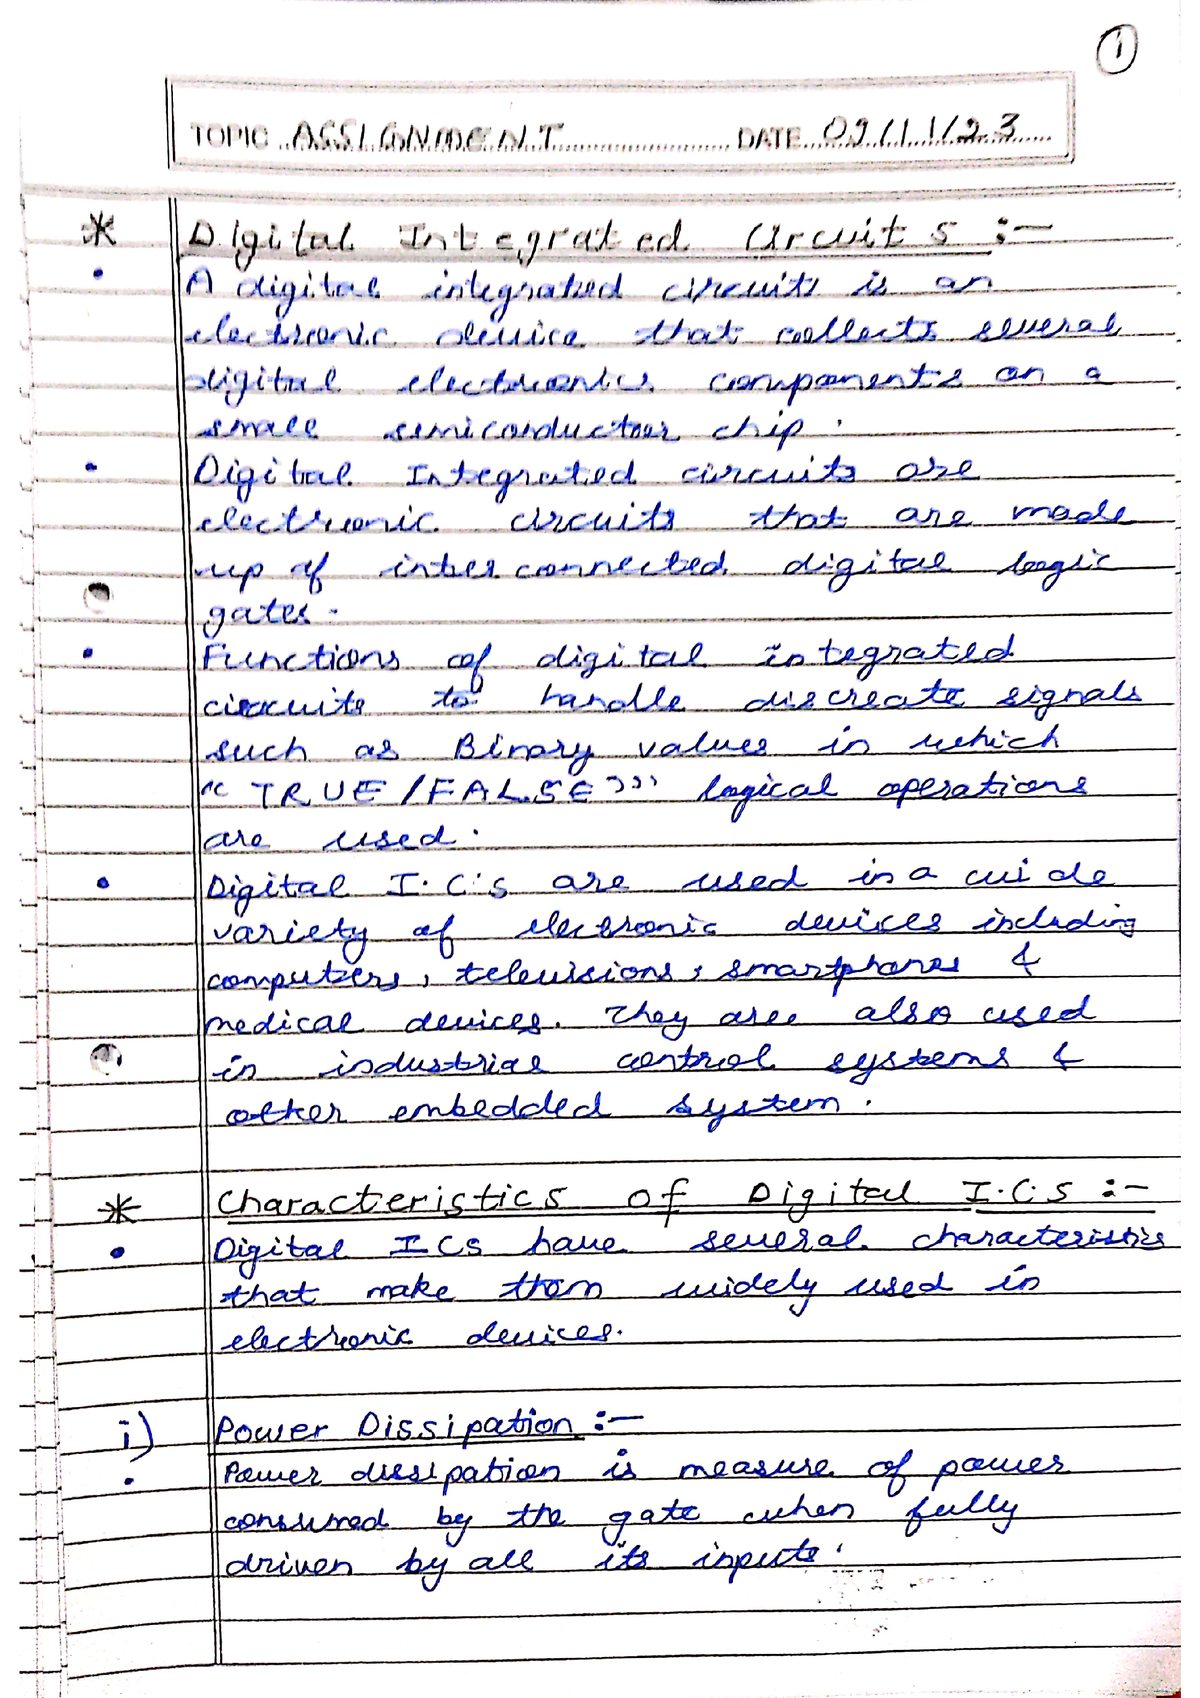 1
TOPIC ASSIGNMENT DATE 09/11/23
* Digital Integrated Circuits :-
• A digital integrated circuits is an
electronic device that collects several
digital electronics components on a
small semiconductor chip.
• Digital Integrated circuits are
electronic circuits that are made
up of inter connected digital logic
gates.
• Functions of digital integrated
circuits to handle discreate signals
such as Binary values in which
"TRUE/FALSE" logical operations
are used.
• Digital I.C's are used in a wide
variety of electronic devices including
computers, televisions, smartphones &
medical devices. They are also used
in industrial control systems &
other embedded system.
* Characteristics of Digital I.C.S :-
• Digital ICs have several characteristics
that make them widely used in
electronic devices.
i) Power Dissipation :-
• Power dissipation is measure of power
consumed by the gate when fully
driven by all its inputs.